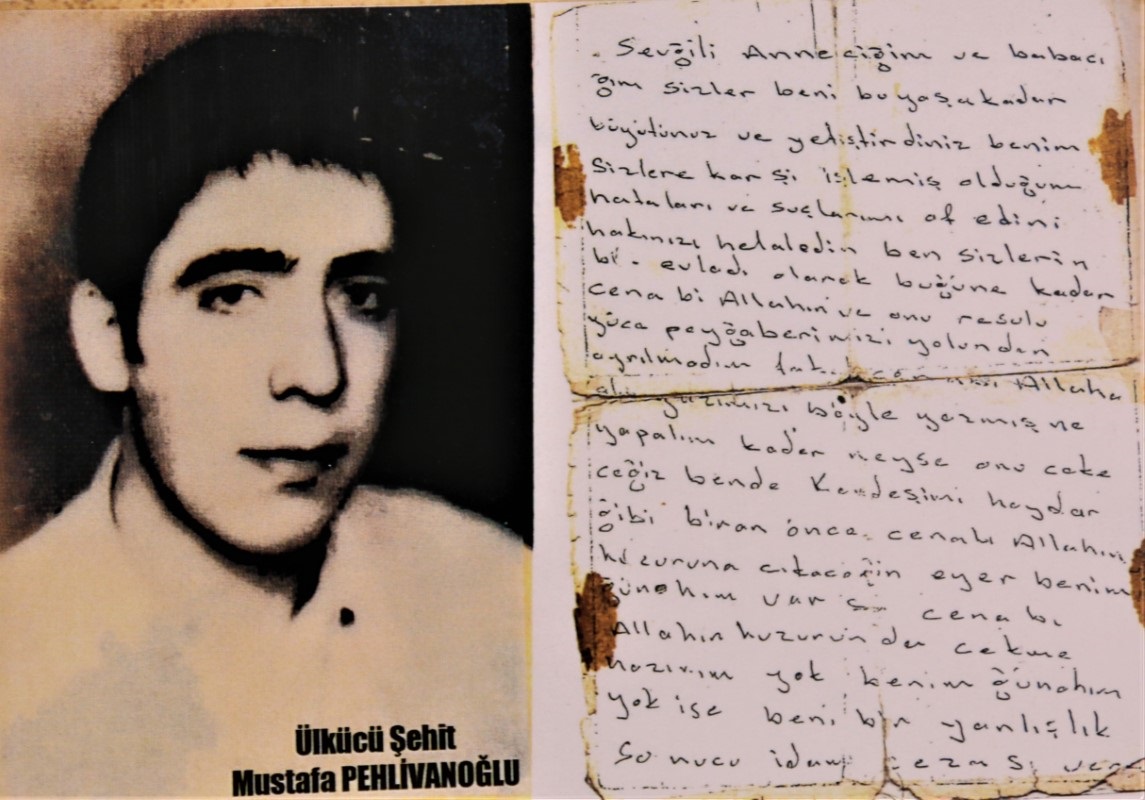 Sevğili Anneciğim ve babacı
ğım sizler beni bu yaşa kadar
büyütünuz ve yetiştirdiniz benim
sizlere karşi işlemiş olduğum
hataları ve suçlarımı af edini
hakınızı helaledin ben sizlerin
bi- evladı olarak buğüne kadar
cena bi Allahın ve onu resulu
yüce peyğaberimizi yolundan
ayrılmadım Allaha
böyle yazmış ne
yapalım kader neyse onu ceke
ceğiz bende Kardeşimi haydar
ğibi biran önce cenabı Allahın
huzuruna cıkacoğin eyer benim
ğünohim var sa cena bı
Allahın huzurunda cekme
hazırım yok benim ğünohım
yok ise beni bir yanlışlık
sonucu idam cezası
Ülkücü Şehit
Mustafa PEHLİVANOĞLU